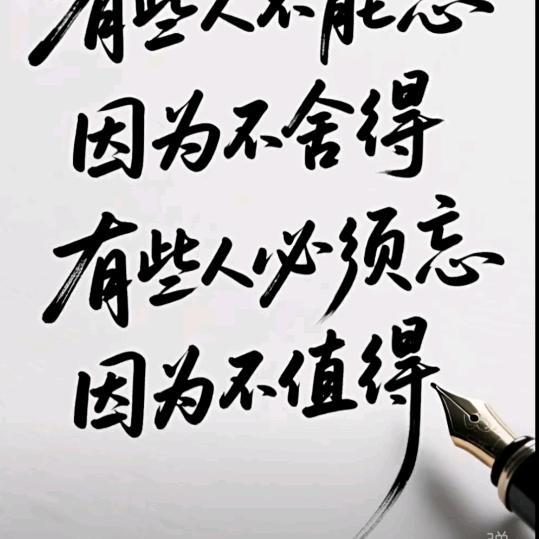 有些人不能忘
因为不舍得
有些人必须忘
因为不值得